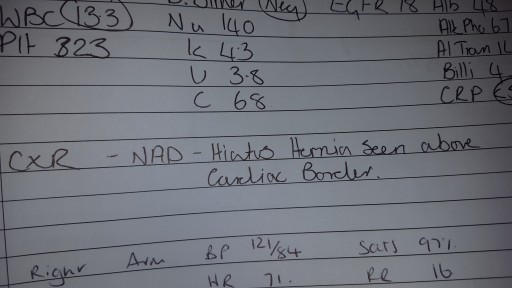 WBC 133 Na 140 EGFR 18 Alb 48
Plt 323 K 4.3 Alk Pho 67
U 3.8 Al Tran 14
C 68 Billi 4
CRP
CXR - NAD - Hiatus Hernia seen above
Cardiac Border.
Right Arm BP 121/84 Sats 97%
HR 71. RR 16